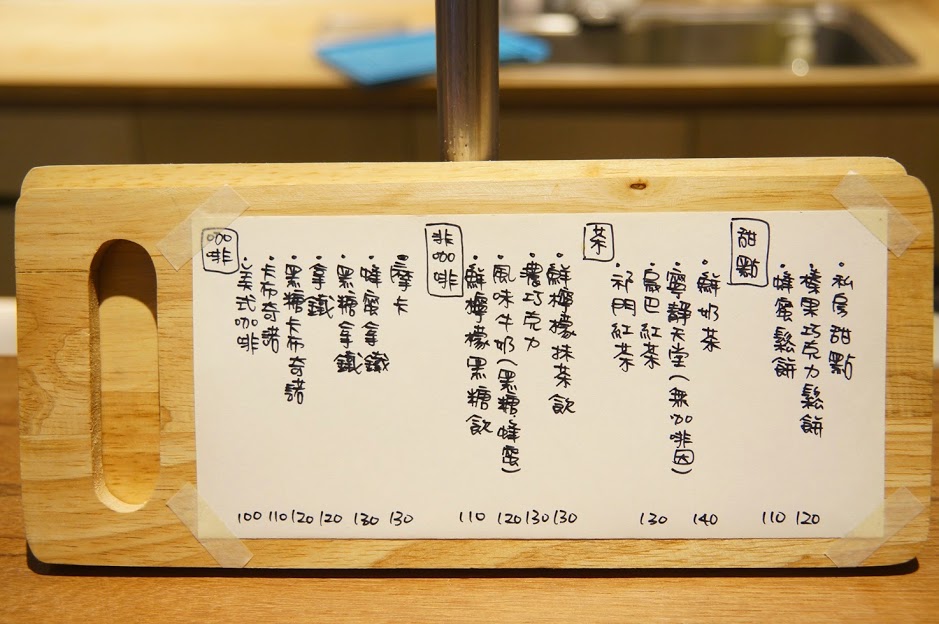 咖啡
·美式咖啡
·卡布奇諾
·黑糖卡布奇諾
·拿鐵
·黑糖拿鐵
·蜂蜜拿鐵
·摩卡
100 110 120 120 130 130
非咖啡
·鮮檸檬黑糖飲
·風味牛奶(黑糖、蜂蜜)
·濃巧克力
·鮮檸檬抹茶飲
110 120 130 130
茶
·祁門紅茶
·烏巴紅茶
·寧靜天堂(無咖啡因)
·鮮奶茶
130 140
甜點
·蜂蜜鬆餅
·榛果巧克力鬆餅
·私房甜點
110 120